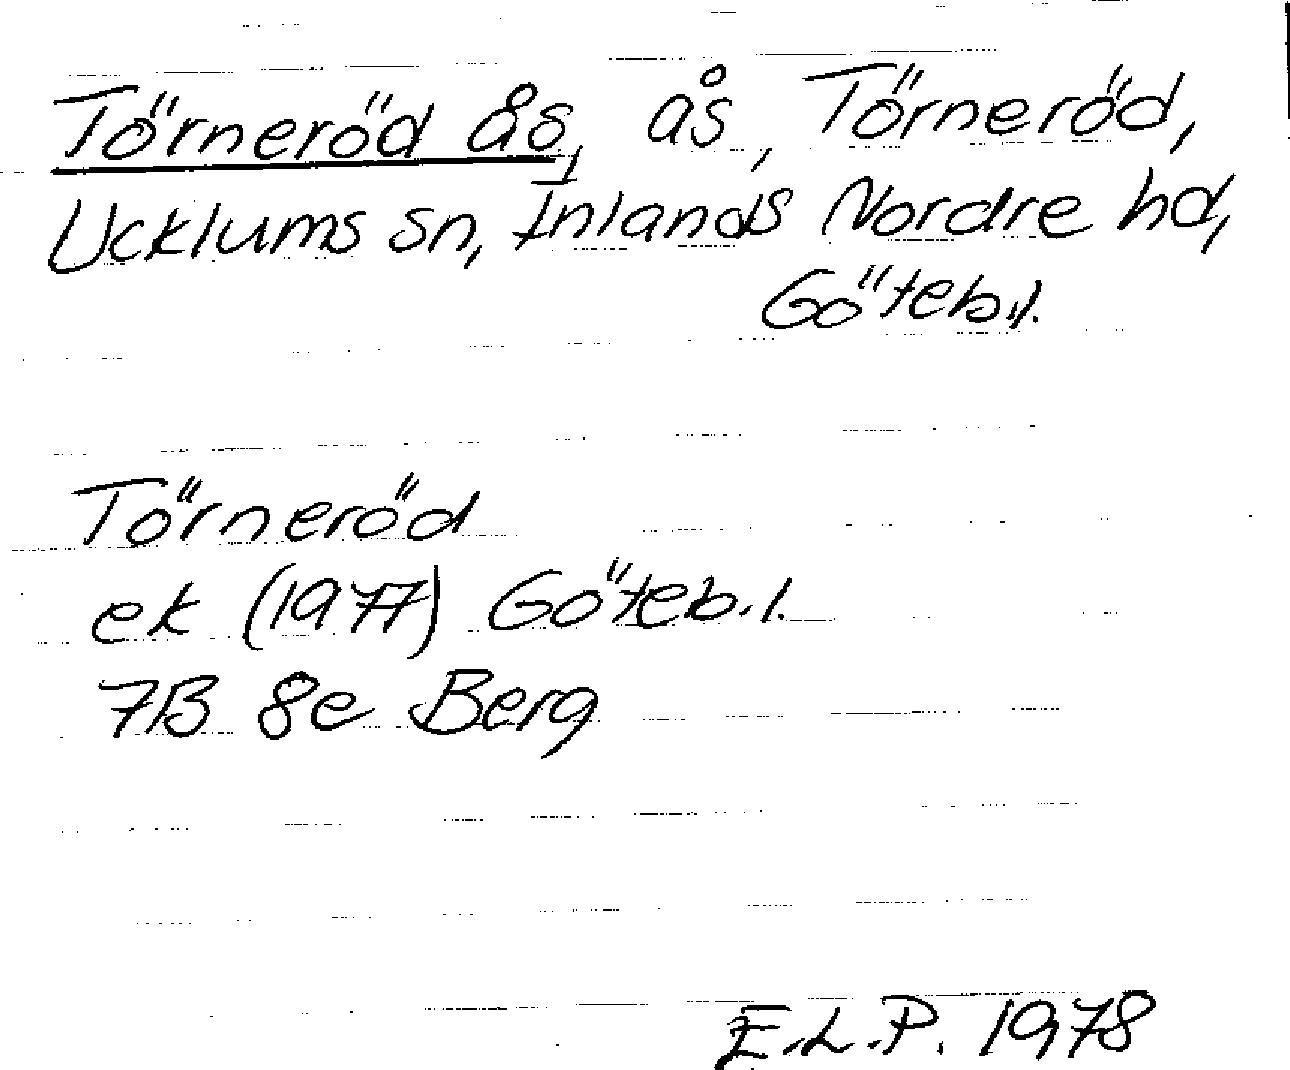 Törneröd ås, ås, Törneröd,
Ucklums sn, Inlands Nordre hd,
Göteb.l.
Törneröd
ek (1977) Göteb.l.
7B 8e Berg
E.L.P. 1978